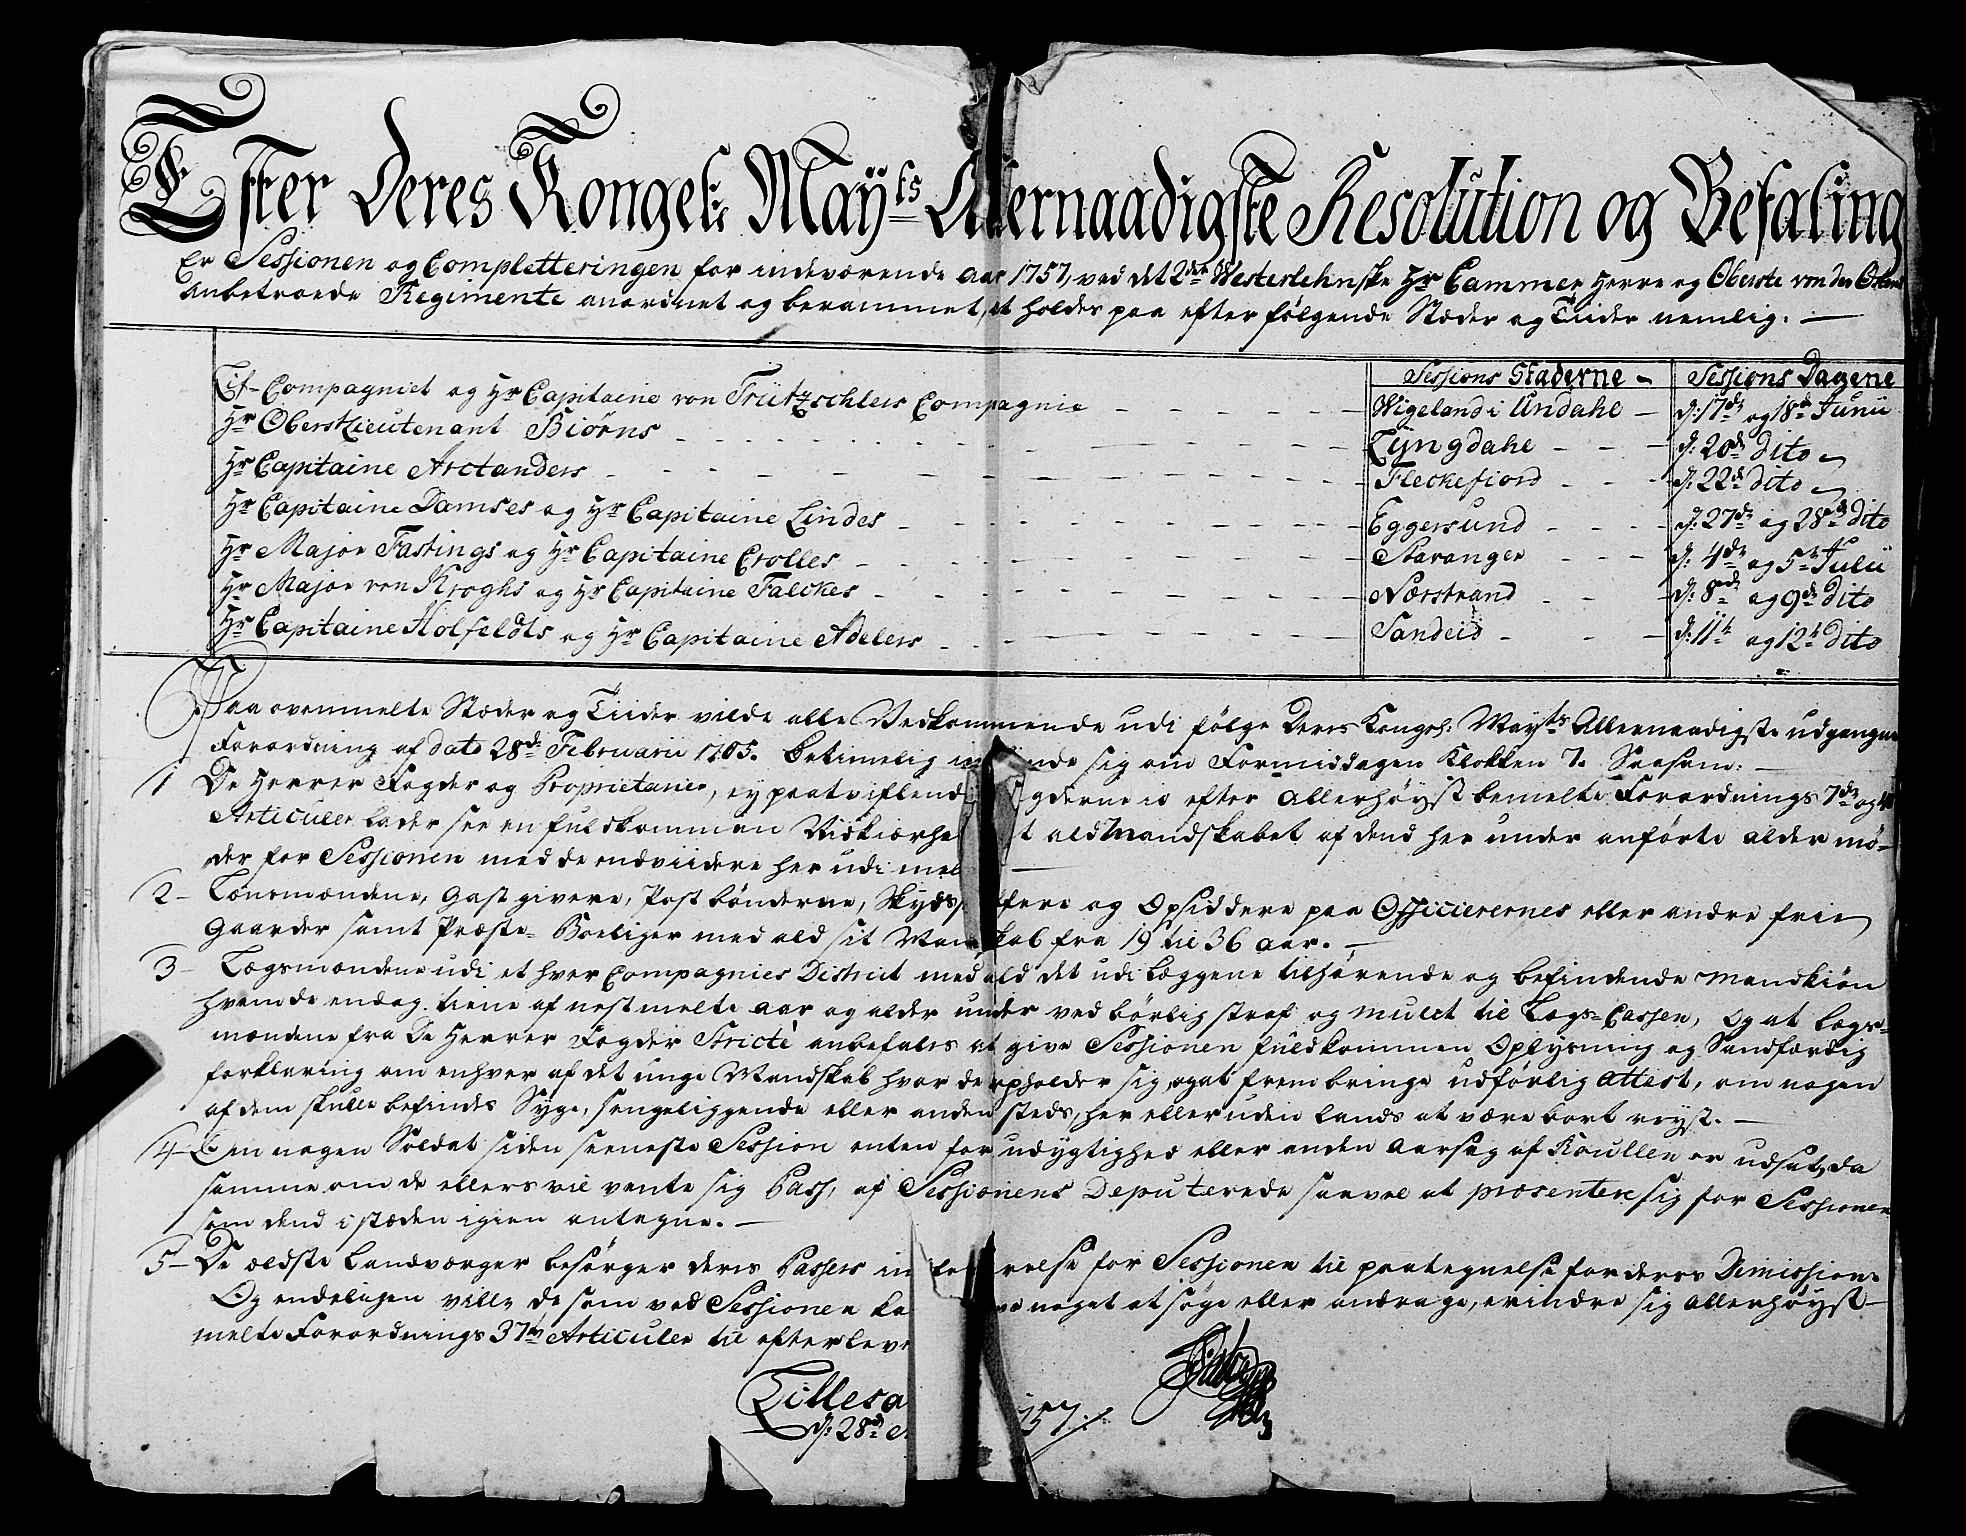 Efter Deres Kongel: May:ts Allernaadigste Resolution og Befaling
Er Sessionen og Completteringen for indeværende aar 1757, ved det 2den Westerlehnske Hr Cammer Herre og Oberste von der Osten
anbetroede Regimente anordnet og berammet, at holdes paa efterfølgende Stæder og Tiider nemlig. —
Sessions Stæderne Sessions Dagene
Lif-Compagniet og Hr Capitaine von Trützschlers Compagnie Wigeland i Undahl d: 17de og 18de Junii
Hr Oberstlieutenant Biørns Lyngdahl d: 20de dito
Hr Capitaine Arctanders Fleckefiord d: 22de dito
Hr Capitaine Damses og Hr Capitaine Lindes Eggersund d: 27de og 28de dito
Hr Major Fastings og Hr Capitaine Crolles Stavanger d: 4de og 5te Julii
Hr Major von Kroghs og Hr Capitaine Falckes Nærstrand d: 8de og 9de dito
Hr Capitaine Holfeldts og Hr Capitaine Adelers Sandeid d: 11te og 12te dito
Paa ovenmelte Stæder og Tiider vilde alle Vedkommende udi følge Deres Kongel: May:ts Allernaadigste udgangne
Forordning af dato 28de Februarii 1705. betimelig indfinde sig om Formiddagen Klokken 7. Saasom: —
1 De Herrer Fogder og Proprietairer, ey paatviflende Fogderne io efter Allerhøyst bemelte Forordnings 7de og
Articuler lader see en fuldkommen Vidkiørhed at ald Mandskabet af dend her under anførte alder mø-
der for Sessionen med de endviidere her udi mel
2 — Lensmændene, Gastgivere, Postbønderne, Skyds og Opsiddere paa Officierernes eller andre frie
Gaarder samt Præste-Boeliger med ald sit Mandskab fra 19 til 36 aar. —
3 — Lægsmændene udi et hver Compagnies District med ald det udi Læggene tilhørende og befindende Mandkiøn
hvem de endog tiene af nestmelte aar og alder under ved børlig straf og mulct til Lægs-Cassen, Og at Lægs-
mændene fra De Herrer Fogder Stricte anbefales at give Sessionen fuldkommen Oplysning og Sandfærdig
forklaring om enhver af det unge Mandskab hvor de opholder sig, og at frembringe udførlig Attest, om nogen
af dem skulle befindes Syge, sengeliggende eller anden steds, her eller uden lands at være bort reyst. —
4 — Om nogen Soldat siden seeneste Session enten for udygtighed eller anden aarsag af Roullen er udsat, da
samme om de ellers vil vente sig Pass, af Sessionens Deputerede saavel at præsentere sig for Sessionen
som dend i stæden igien antagne. —
5 — De ældste Landværger besørger deris Passers for Sessionen til paategnelse for deres Dimission.
Og endeligen ville de som ved Sessionen noget at søge eller andrage, erindre sig allerhøyst-
melte Forordnings 37te Articuler til efterleve
Lillesa
d: 28de 757.